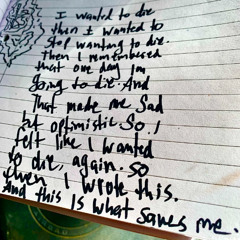 I wanted to die
then I wanted to
stop wanting to die.
Then I remembered
that one day I'm
going to die. And
That made me sad
but optimistic. So I
felt like I wanted
to die, again. So
then I wrote this.
And this is what saves me.